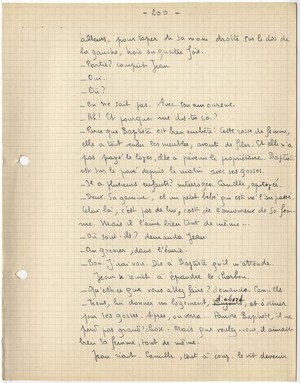 - 200 -
ailleurs, pour taper de sa main droite sur le dos de
la gauche, trois ou quatre fois.
_ Partie? comprit Jean
_ Oui.
_ Où?
_ On ne sait pas. Avec son amoureux.
_ Ah! Et pourquoi me dis-tu ça?
_ Parce que Baptiste est bien embêté. Cette rosse de femme,
elle a tout vendu les meubles, avant de filer. Et elle n'a
pas payé le loyer, elle a prévenu le propriétaire. Baptiste
est sur le pavé depuis ce matin avec ses gosses.
_ Il a plusieurs enfants? interrogea Camille, apitoyée.
_ Deux. Sa gamine, et un petit bébé qu'on est
Celui-là, c'est pas de lui, c'est de l'amoureux de sa fem-
me. Mais il l'aime bien tout de même...
_ Où sont-ils? demanda Jean
_ Au grenier, dans l'écurie.
_ Bon. J'irai voir. Dis à Baptiste qu'il m'attende.
Jean se remit à épandre le charbon.
_ Qu'est-ce que vous allez faire? demanda Camille.
_ Tiens, lui donner un logement, d'abord, et à dîner
pour ses gosses. Après, on verra. Pauvre Baptiste, il ne
perd pas grand'chose. Mais que voulez-vous, il aimait
bien sa femme, tout de même.
Jean riait. Camille, tout à coup, le vit devenir